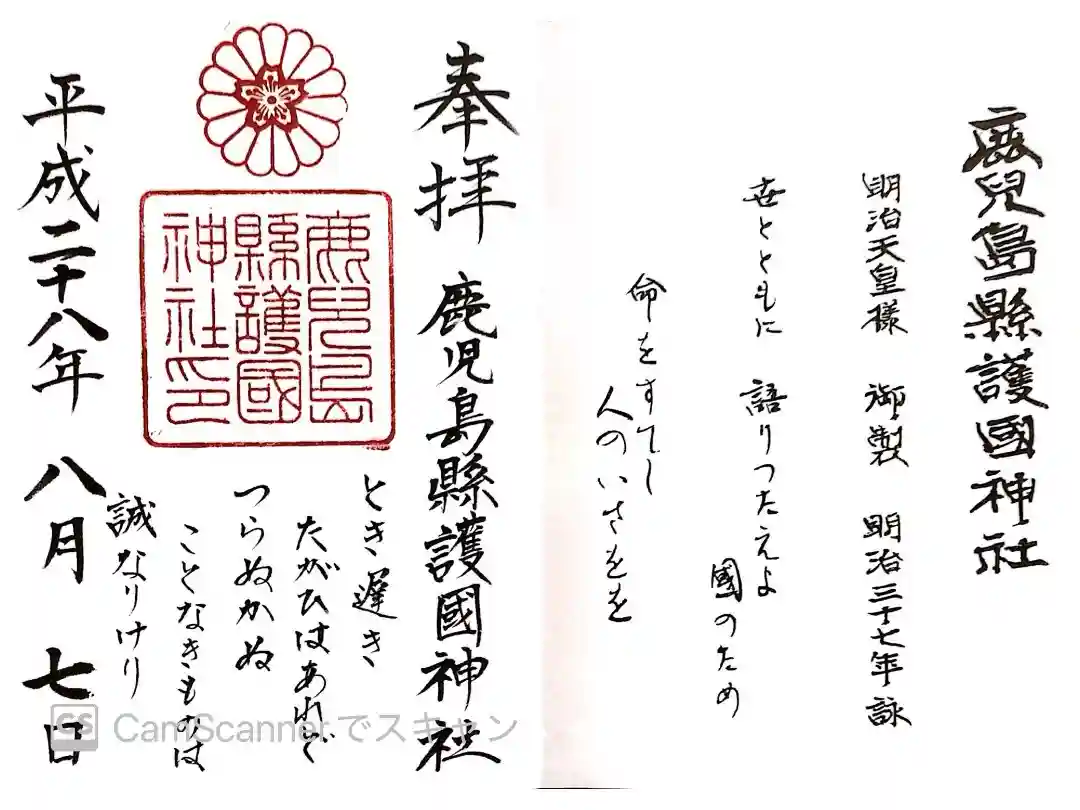 鹿兒島縣護國神社
明治天皇様 御製 明治三十七年詠
世とともに 語りつたえよ
國のため
命をすてし
人のいさをを
奉拝 鹿児島縣護國神社
鹿兒島
縣護國
神社印
とき遅き
たがひはあれど
つらぬかぬ
ことなきものは
誠なりけり
平成二十八年 八月 七日
CS CamScannerでスキャン